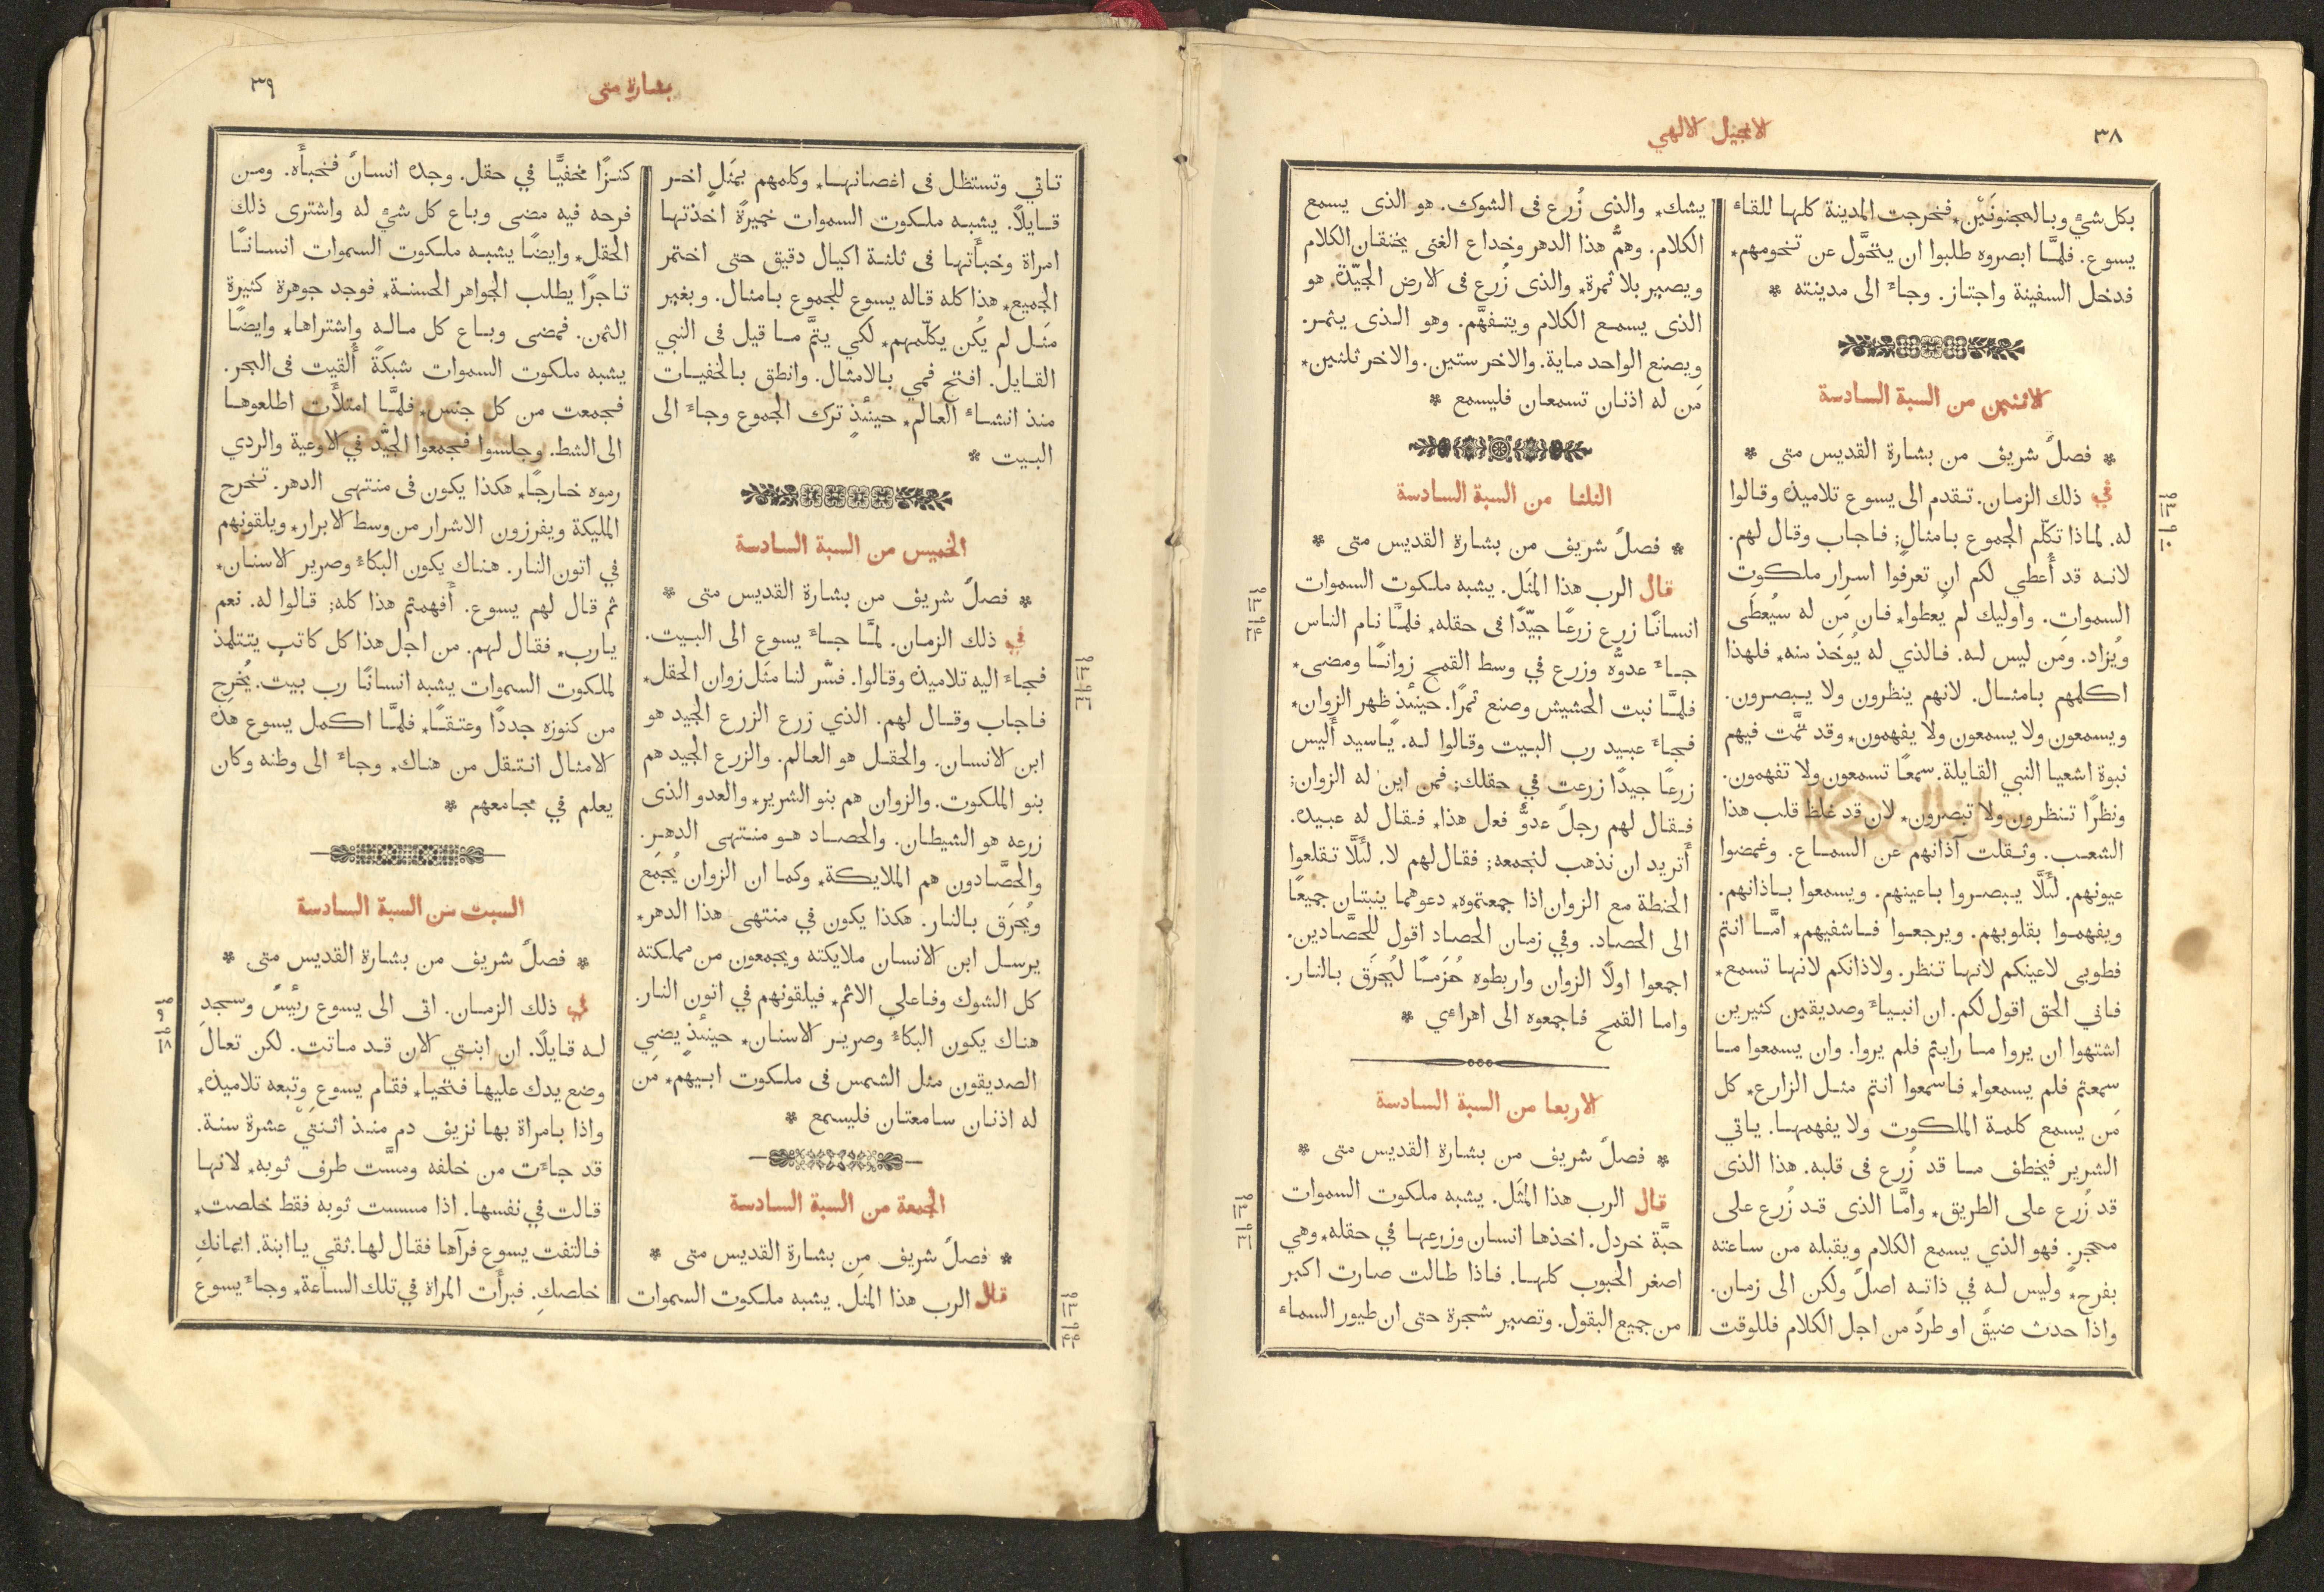 ٣٨
الانجيل الالهي
بكل شيءٍ وبالمجنونَيْن٭ فخرجت المدينة كلها للقاءِ
يسوع. فلمَّا ابصروه طلبوا ان يتحَّول عن تخومهم٭
فدخل السفينة واجتاز. وجاءَ الى مدينته ٭
الاثنين من السبة السادسة
٭ فصلٌ شريف من بشارة القديس متى ٭
في ذلك الزمان. تقدم الى يسوع تلاميذه وقالوا
له. لماذا تكلّم الجموع بامثالٍ; فاجاب وقال لهم.
لانه قد أُعطي لكم ان تعرفوا اسرار ملكوت
السموات. واوليك لم يعطوا٭ فان مَن له سيُعطَى
ويُزاد. ومَن ليس له. فالذي له يُوخَذ منه٭ فلهذا
اكلمهم بامثال. لانهم ينظرون ولا يبصرون.
ويسمعون ولا يسمعون ولا يفهمون٭ وقد تمَّت فيهم
نبوة اشعيا النبي القايلة. سمعًا تسمعون ولا تفهمون.
ونظرًا تنظرون ولا تبصرون٭ لان قد غلظ قلب هذا
الشعب. وثقلت آذانهم عن السماع. وغمضوا
عيونهم. لئَلَّا يبصروا باعينهم. ويسمعوا باذانهم.
ويفهموا بقلوبهم. ويرجعوا فاشفيهم٭ امَّا انتم
فطوبى لاعينكم لانها تنظر. ولاذانكم لانها تسمع٭
فاني الحق اقول لكم. ان انبياءَ وصديقين كثيرين
اشتهوا ان يروا ما رايتم فلم يروا. وان يسمعوا ما
سمعتم فلم يسمعوا٭ فاسمعوا انتم مثل الزارع٭ كل
مَن يسمع كلمة الملكوت ولا يفهمها. ياتي
الشرير فيخطف ما قد زُرع فى قلبه. هذا الذى
قد زُرع على الطريق٭ وامَّا الذى قد زُرع على
محجرٍ. فهو الذي يسمع الكلام ويقبله من ساعته
بفرح٭ وليس له في ذاته اصلٌ ولكن الى زمان.
واذا حدث ضيقٌ او طردٌ من اجل الكلام فللوقت
يشك٭ والذى زُرع فى الشوك. هو الذى يسمع
الكلام. وهمُّ هذا الدهر وخداع الغنى يخنقان الكلام
ويصير بلا ثمرة٭ والذى زُرع فى الارض الجيّدة. هو
الذى يسمع الكلام ويتفهَّم. وهو الذى يثمر.
ويصنع الواحد ماية. والاخر ستين. والاخر ثلثين٭
مَن له اذنان تسمعان فليسمع ٭
الثلثا من السبة السادسة
٭ فصلٌ شريف من بشارة القديس متى ٭
قال الرب هذا المثَل. يشبه ملكوت السموات
انسانًا زرع زرعًا جيّدًا فى حقله٭ فلمَّا نام الناس
جاءَ عدوُّه وزرع في وسط القمح زوانًا ومضى٭
فلمَّا نبت الحشيش وصنع ثمرًا. حينئذٍ ظهر الزوان٭
فجاءَ عبيد رب البيت وقالوا له. ياسيد أَليس
زرعًا جيدًا زرعت في حقلك; فمن اين له الزوان;
فقال لهم رجلٌ عدوٌّ فعل هذا٭ فقال له عبيده.
أَتريد ان نذهب لنجمعه; فقال لهم لا. لئَلَّا تقلعوا
الحنطة مع الزوان اذا جمعتموه٭ دعوهما ينبتان جميعًا
الى الحصاد. وفي زمان الحصاد اقول للحصَّادين.
اجمعوا اولًا الزوان واربطوه حُزَمًا ليُحرَق بالنار.
واما القمح فاجمعوه الى اهراءي ٭
الاربعا من السبة السادسة
٭ فصلٌ شريف من بشارة القديس متى ٭
قال الرب هذا المثَل. يشبه ملكوت السموات
حبَّة خردل. اخذها انسان وزرعها في حقله٭ وهي
اصغر الحبوب كلها. فاذا طالت صارت اكبر
من جميع البقول. وتصير شجرة حتى ان طيور السماءِ
بشارة متى
٣٩
تاتي وتستظل فى اغصانها٭ وكلمهم بمثَلٍ اخر
قايلًا. يشبه ملكوت السموات خميرةً اخذتها
امراة وخبأَتها فى ثلثة اكيال دقيق حتى اختمر
الجميع٭ هذا كله قاله يسوع للجموع بامثال. وبغير
مثَل لم يكُن يكلّمهم٭ لكي يتمَّ ما قيل فى النبي
القايل. افتح فمي بالامثال. وانطق بالخفيات
منذ انشاء العالم٭ حينئذٍ ترك الجموع وجاءَ الى
البيت ٭
الخميس من السبة السادسة
٭ فصلٌ شريف من بشارة القديس متى ٭
في ذلك الزمان. لمَّا جاءَ يسوع الى البيت.
فجاءَ اليه تلاميذه وقالوا. فسّر لنا مثَل زوان الحقل٭
فاجاب وقال لهم. الذي زرع الزرع الجيد هو
ابن الانسان. والحقل هو العالم. والزرع الجيد هم
بنو الملكوت. والزوان هم بنو الشرير٭ والعدو الذى
زرعه هو الشيطان. والحصاد هو منتهى الدهر.
والحصَّادون هم الملايكة٭ وكما ان الزوان يُجمَع
ويُحرَق بالنار. هكذا يكون في منتهى هذا الدهر٭
يرسل ابن الانسان ملايكته ويجمعون من مملكته
كل الشوك وفاعلي الاثم٭ فيلقونهم في اتون النار.
هناك يكون البكاءُ وصرير الاسنان٭ حينئذٍ يضي
الصديقون مثل الشمس فى ملكوت ابيهم٭ مَن
له اذنان سامعتان فليسمع ٭
الجمعة من السبة السادسة
٭ فصلٌ شريف من بشارة القديس متى ٭
قال الرب هذا المثل. يشبه ملكوت السموات
كنزًا مخفيًّا في حقل. وجده انسانٌ فخبأَه. ومن
فرحه فيه مضى وباع كل شيءٍ له واشترى ذلك
الحقل٭ وايضًا يشبه ملكوت السموات انسانًا
تاجرًا يطلب الجواهر الحسنة٭ فوجد جوهرة كثيرة
الثمن. فمضى وباع كل ماله واشتراها٭ وايضًا
يشبه ملكوت السموات شبكةً أُلقيت فى البحر.
فجمعت من كل جنس٭ فلمَّا امتلأَت اطلعوها
الى الشط. وجلسوا فجمعوا الجيَّد في الاوعية والردي
رموه خارجًا٭ هكذا يكون فى منتهى الدهر. تخرج
المليكة ويفرزون الاشرار من وسط الابرار٭ ويلقونهم
في اتون النار. هناك يكون البكاءُ وصرير الاسنان٭
ثم قال لهم يسوع. أَفهمتم هذا كله; قالوا له. نعم
يارب٭ فقال لهم. من اجل هذا كل كاتب يتتلمذ
لملكوت السموات يشبه انسانًا رب بيت. يُخرِج
من كنوزه جددًا وعتقًا٭ فلمَّا اكمل يسوع هذه
الامثال انتقل من هناك٭ وجاءَ الى وطنه وكان
يعلم في مجامعهم ٭
السبت من السبة السادسة
٭ فصلٌ شريف من بشارة القديس متى ٭
في ذلك الزمان. اتى الى يسوع رئيسٌ وسجد
له قايلًا. ان ابنتي الان قد ماتت. لكن تعالَ
وضع يدك عليها فتحيا٭ فقام يسوع وتبعه تلاميذه٭
واذا بامراة بها نزيف دم منذ اثنتَيْ عشرة سنة.
قد جاءَت من خلفه ومسَّت طرف ثوبه٭ لانها
قالت في نفسها. اذا مسست ثوبه فقط خلصت٭
فالتفت يسوع فرآها فقال لها. ثقي يا ابنة. ايمانكِ
خلصكِ. فبرأَت المراة في تلك الساعة٭ وجاءَ يسوع